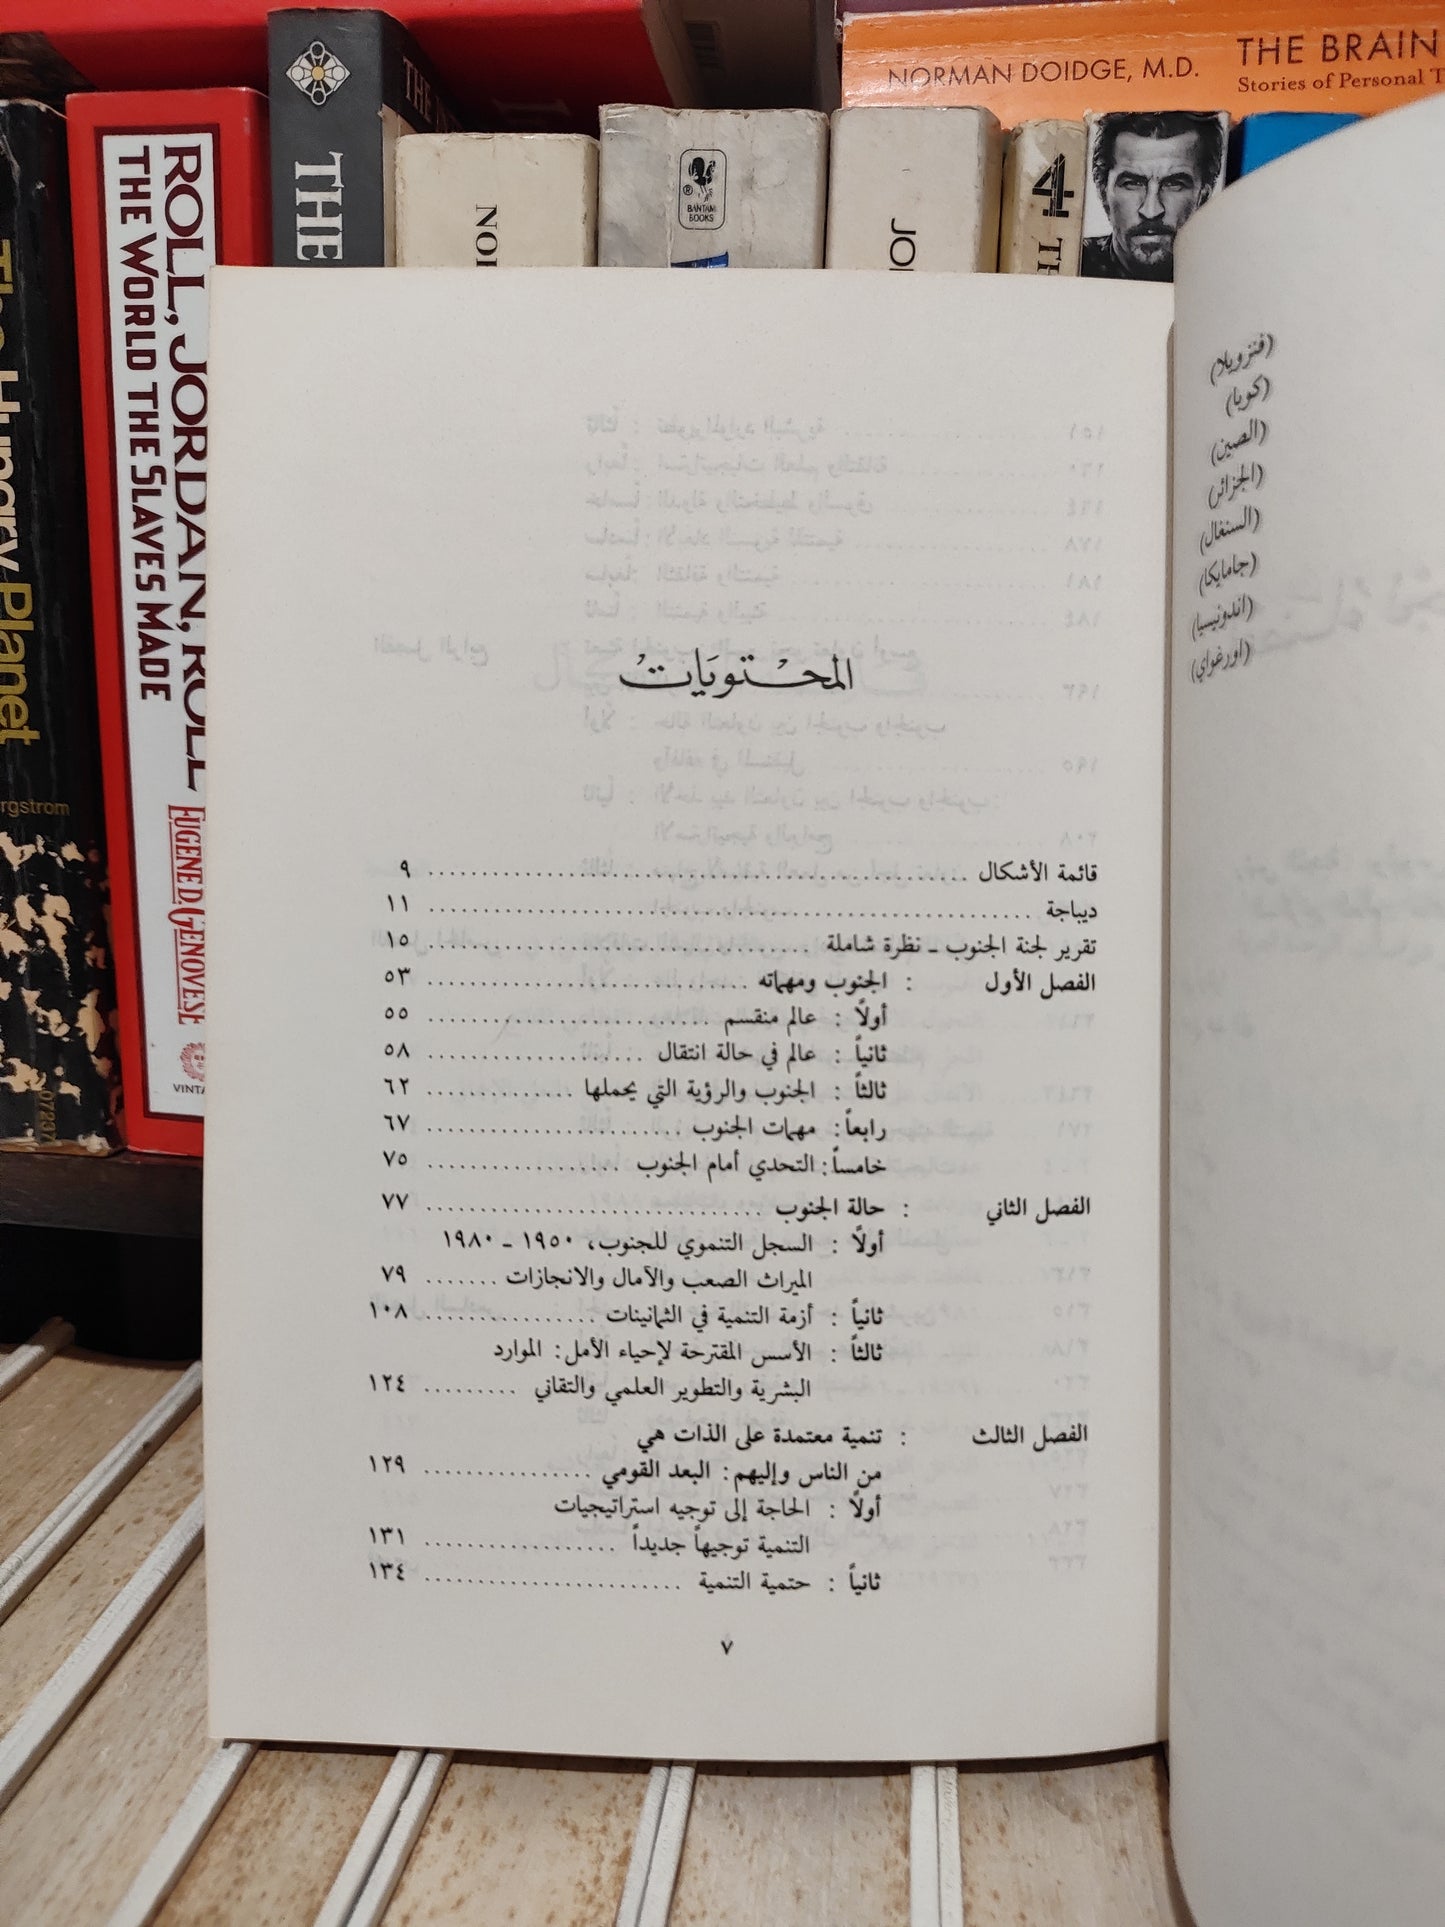 NORMAN DOIDGE, M.D.
THE BRAIN
Stories of Personal
ROLL, JORDAN, ROLL
THE WORLD THE SLAVES MADE
EUGENE D. GENOVESE
Hungry Planet
rgstrom
07237
THE
NOI
BANTAM
BOOKS
JOI
4
TH
المحتويات
قائمة الأشكال ........ ٩
ديباجة ........ ١١
تقرير لجنة الجنوب ـ نظرة شاملة ........ ١٥
الفصل الأول : الجنوب ومهماته ........ ٥٣
أولاً : عالم منقسم ........ ٥٥
ثانياً : عالم في حالة انتقال ........ ٥٨
ثالثاً : الجنوب والرؤية التي يحملها ........ ٦٢
رابعاً : مهمات الجنوب ........ ٦٧
خامساً : التحدي أمام الجنوب ........ ٧٥
الفصل الثاني : حالة الجنوب ........ ٧٧
أولاً : السجل التنموي للجنوب، ١٩٥٠ ـ ١٩٨٠
الميراث الصعب والآمال والانجازات ........ ٧٩
ثانياً : أزمة التنمية في الثمانينات ........ ١٠٨
ثالثاً : الأسس المقترحة لإحياء الأمل: الموارد
البشرية والتطوير العلمي والتقاني ........ ١٢٤
الفصل الثالث : تنمية معتمدة على الذات هي
من الناس وإليهم: البعد القومي ........ ١٢٩
أولاً : الحاجة إلى توجيه استراتيجيات
التنمية توجيهاً جديداً ........ ١٣١
ثانياً : حتمية التنمية ........ ١٣٤
٧
(فنزويلا)
(كوبا)
(الصين)
(الجزائر)
(السنغال)
(جامايكا)
(اندونيسيا)
(اورغواي)